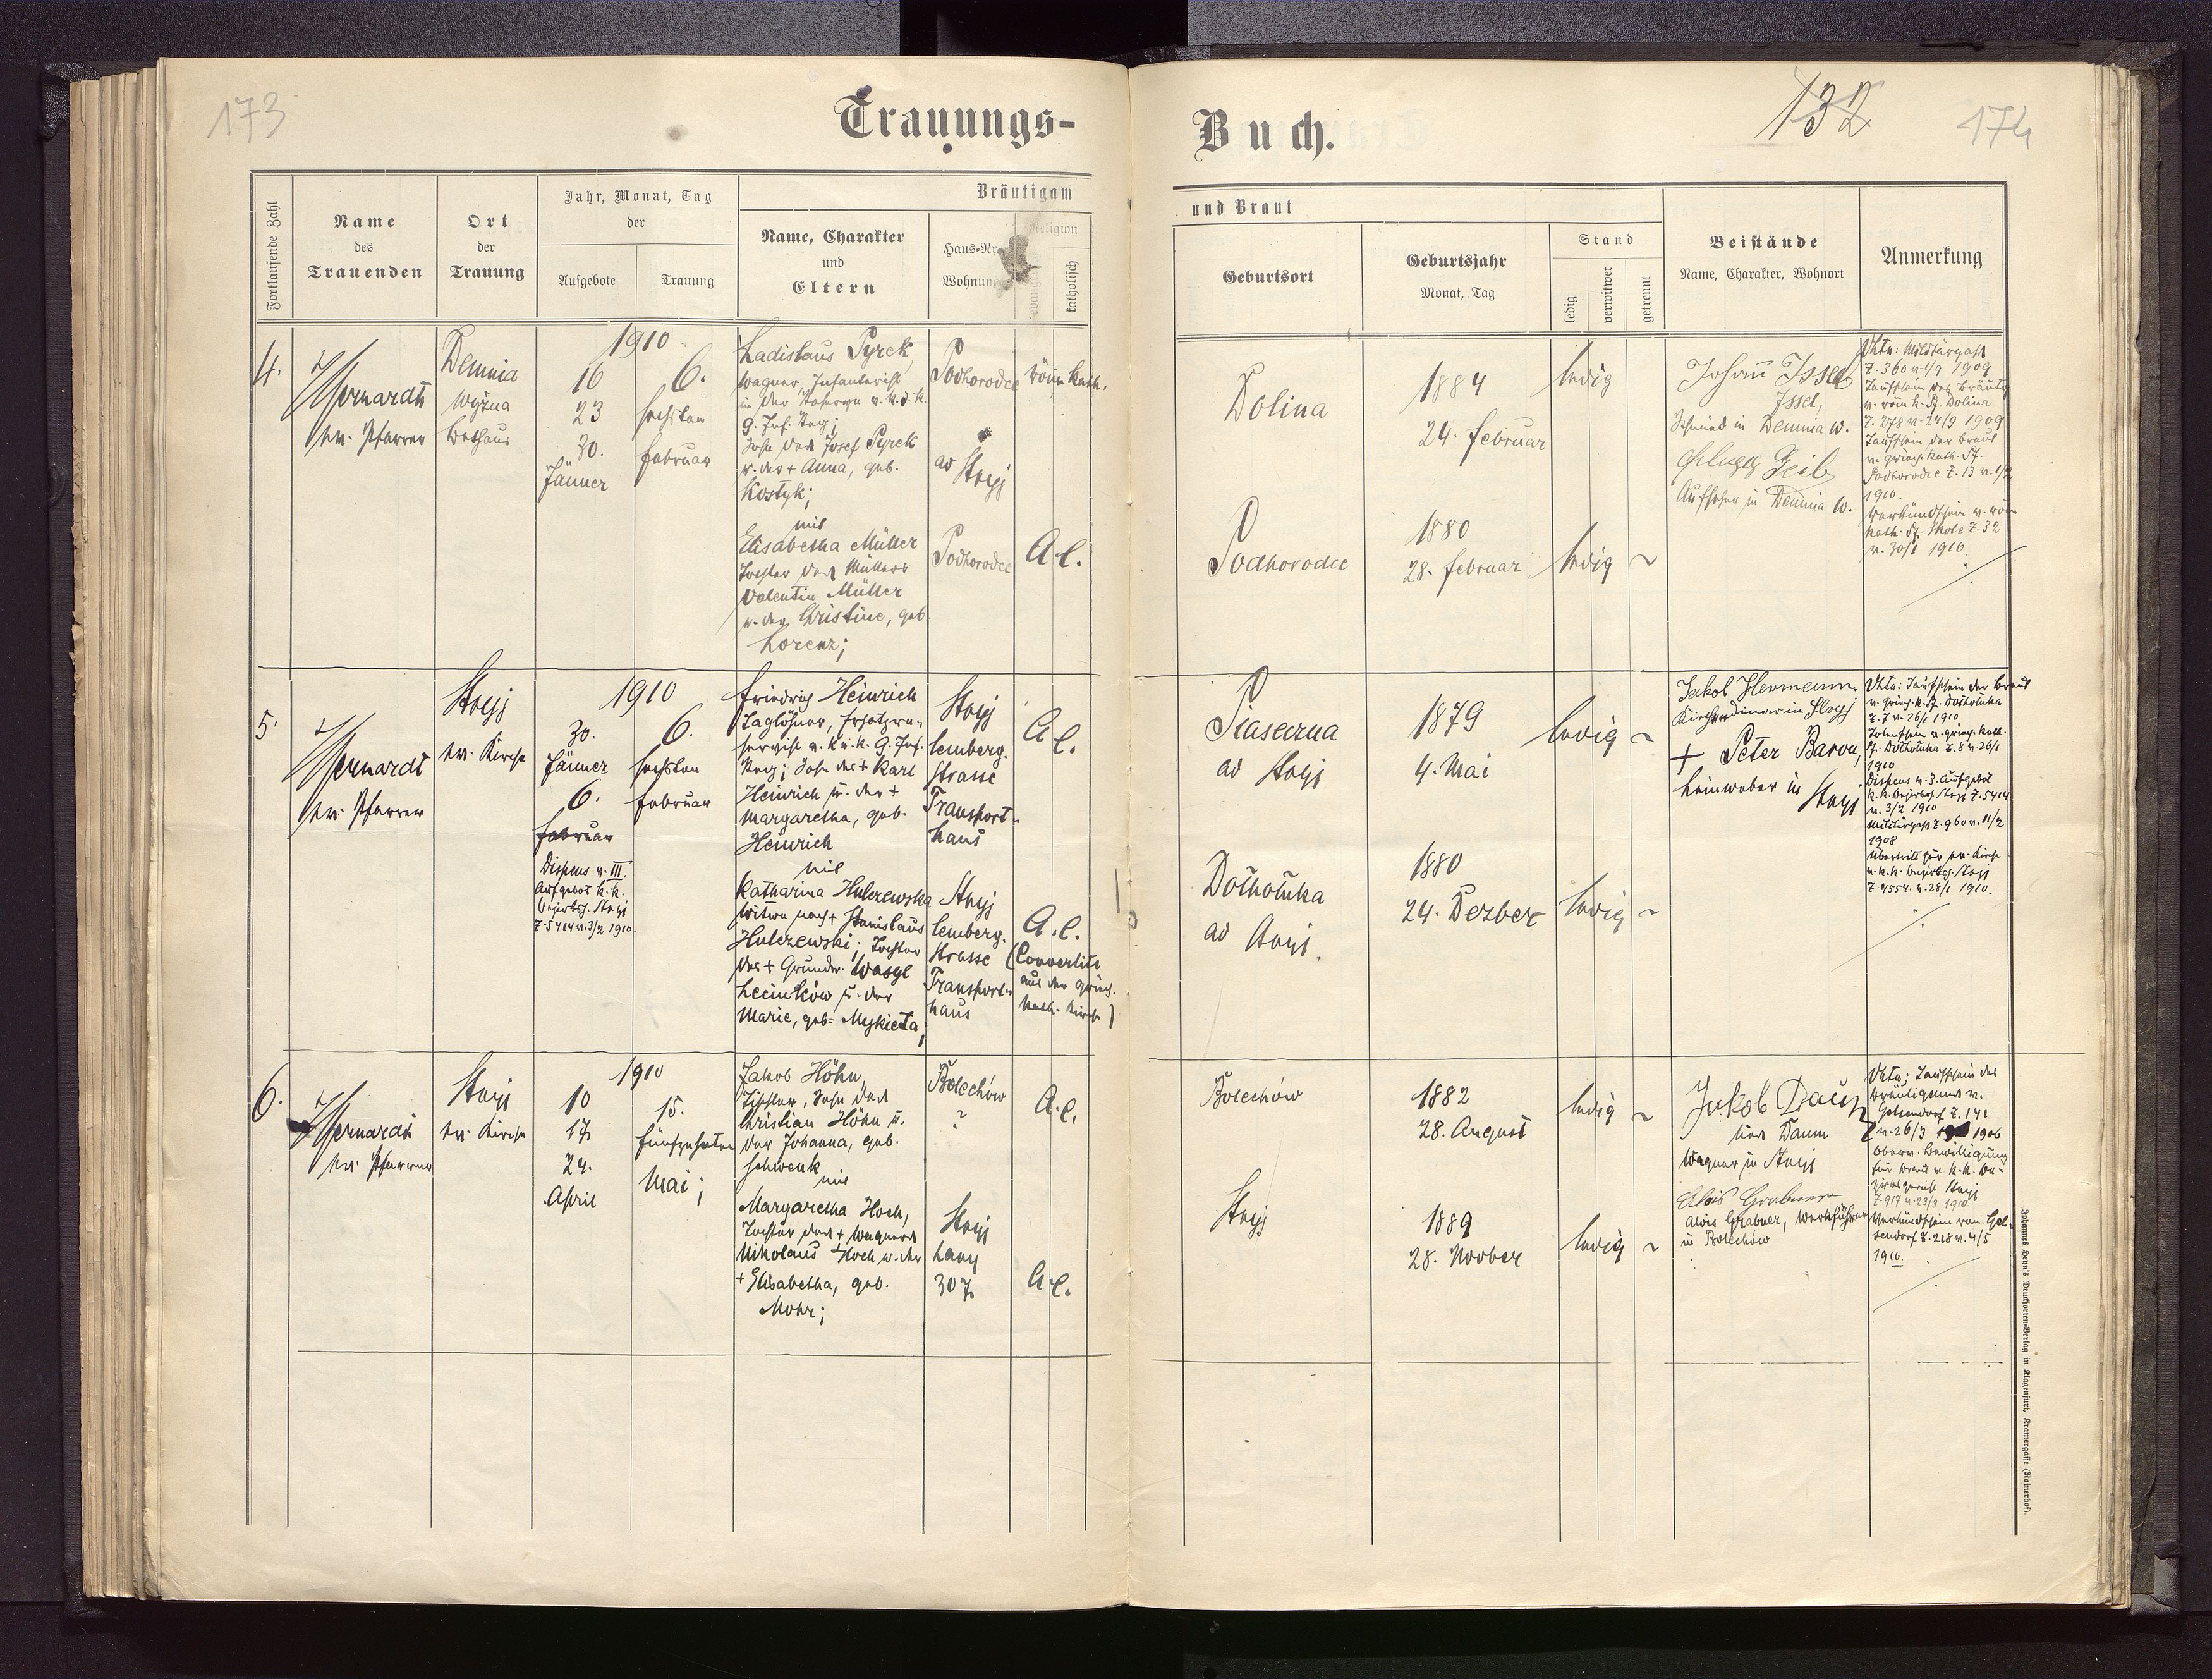 173
Trauungs-
Buch.
132
174
Fortlaufende Zahl
Name
des
Trauenden
Ort
der
Trauung
Jahr, Monat, Tag
der
Aufgebote
Trauung
Bräutigam
Name, Charakter
und
Eltern
Haus-Nr.
Wohnung
Religion
katholisch
und Braut
Geburtsort
Geburtsjahr
Monat, Tag
Stand
ledig
verwitwet
getrennt
Beistände
Name, Charakter, Wohnort
Anmerkung
4.
ev. Pfarrer
Demnia
wyżna
Bethaus
1910
16
23
30.
Jänner
6.
sechsten
Februar
Ladislaus Pyrek
Wagner, Infanterist
in der Reserve d. k. u. k.
9. Inf. Reg;
Sohn des Josef Pyrek
u. der + Anna, geb.
Kostyk;
mit
Elisabetha Müller
Tochter des Müllers
Valentin Müller
u. der Christine, geb.
Lorenz;
Podhorodce
ad
Stryj
Podhorodce
röm. kath.
A. C.
Dolina
Podhorodce
1884
24. Februar
1880
28. Februar
ledig
ledig ~
Johann Issel
Issel,
Schmied in Demnia w.
Geib
Aufseher in Demnia w.
Vkta: Militärpass
Z. 360 v. 1/9 1909
Taufschein des Bräutig
v. röm. k. Pf. Dolina
Z. 278 v. 24/9 1909
Taufschein der Braut
v. griech. kath. Pf.
Podhorodce Z. 13 v. 1/2
1910.
Verkündschein v. röm
kath. Pf. Skole Z. 32
v. 30/1 1910.
5.
ev. Pfarrer
Stryj
ev. Kirche
1910
30.
Jänner
6.
Februar
Dispens v. III.
Aufgebot k. k.
Bezirksh. Stryj
Z. 5414 v. 3/2 1910.
6.
sechsten
Februar
Friedrich Heinrich
Taglöhner, Ersatzre-
servist d. k. u. k. 9. Inf.
Reg; Sohn des + Karl
Heinrich u. der +
Margaretha, geb.
Heinrich
mit
Katharina Hulczewska
Witwe nach + Stanislaus
Hulczewski; Tochter
des + Grundw. Wasyl
u. der
Marie, geb. Mykieta;
Stryj
Lemberg.
Strasse
Transport-
haus
Stryj
Lemberg.
Strasse
Transport-
haus
A. C.
A. C.
(Convertite
aus der griech.
kath. Kirche)
Piaseczna
ad Stryj
Dołhołuka
ad Stryj.
1879
4. Mai
1880
24. Dezber
ledig ~
ledig ~
Jakob Hermann
Kirchendiener in Stryj
+ Peter Baron,
Leinweber in Stryj
Vkta: Taufschein der Braut
v. griech. k. Pf. Dołhołuka
Z. 7 v. 26/1 1910
Totenschein v. griech. kath.
Pf. Dołhołuka Z. 8 v. 26/1
1910
Dispens v. 3. Aufgebot
k. k. Bezirksh. Stryj Z. 5414
v. 3/2 1910
Militärpass Z. 960 v. 11/2
1908
Übertritt zur ev. Kirche
v. k. k. Bezirksh. Stryj
Z. 4554 v. 28/1 1910.
6.
ev. Pfarrer
Stryj
ev. Kirche
1910
10
17
24.
April
15.
fünfzehnten
Mai;
Jakob Höhn,
Tischler, Sohn des
Christian Höhn u.
der Johanna, geb.
Schwenk
mit
Margaretha Hoch,
Tochter des + Wagners
Nikolaus Hoch u. der
+ Elisabetha, geb.
Mohr;
Bolechów
?
Stryj
Lany
307
A. C.
A. C.
Bolechów
Stryj
1882
28. August
1889
28. Novber
ledig ~
ledig ~
Jakob Daum
Daum
Wagner in Stryj
Alois Grabner
Alois Grabner, Werkführer
in Bolechów
Vkta; Taufschein des
Bräutigams v.
Gelsendorf Z. 141
v. 26/3 1906
Oberv. Bewilligung
für Braut v. k. k. Be-
zirksgericht Stryj
Z. 917 v. 23/3 1910
Verkündschein von Gel-
sendorf Z. 218 v. 4/5
1910.
Johannes Heyn's Drucksorten-Verlag in Klagenfurt, Kramergasse (Rainerhof)